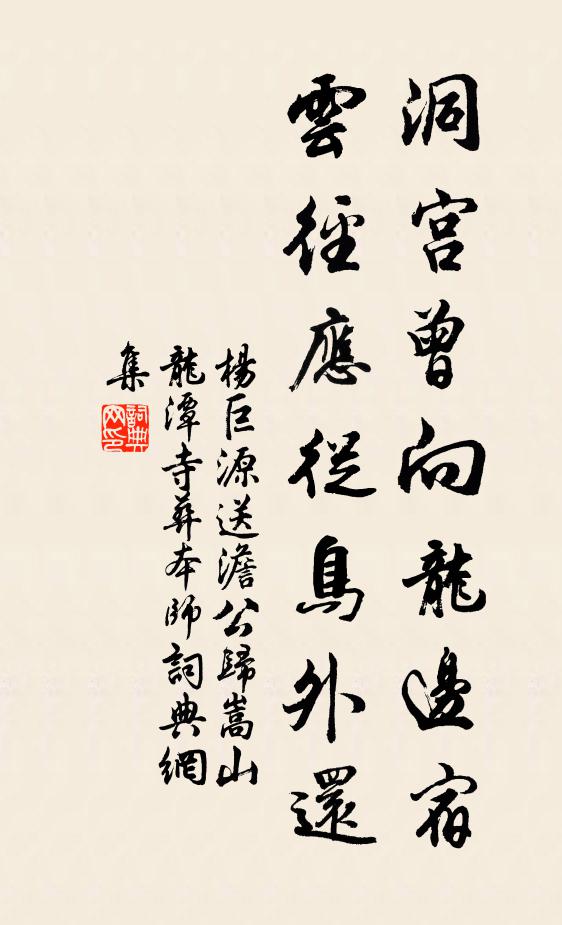 洞宮曾向龍邊宿
雲徑應從鳥外還
楊巨源送澹公歸嵩山
龍潭寺葬本師詞典網
集
詞典
网印